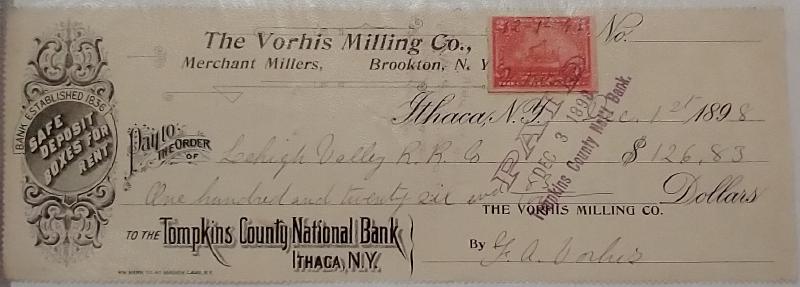 The Vorhis Milling Co.,
Merchant Millers, Brookton, N. Y.
No.
12-1-98
BANK ESTABLISHED 1836
SAFE DEPOSIT BOXES FOR RENT
Ithaca, N.Y. Dec. 1st 1898
Pay to THE ORDER OF Lehigh Valley R. R. Co $126.83
One hundred and twenty six and Dollars
PAID
DEC 3 1898
Tompkins County Nat'l Bank.
THE VORHIS MILLING CO.
TO THE Tompkins County National Bank
ITHACA, N.Y.
By F. A. Vorhis